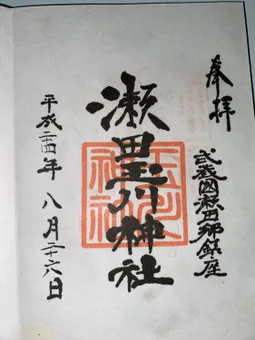 奉拝
武蔵國瀬田郷鎮座
瀬田玉川神社
平成二十四年八月二十六日